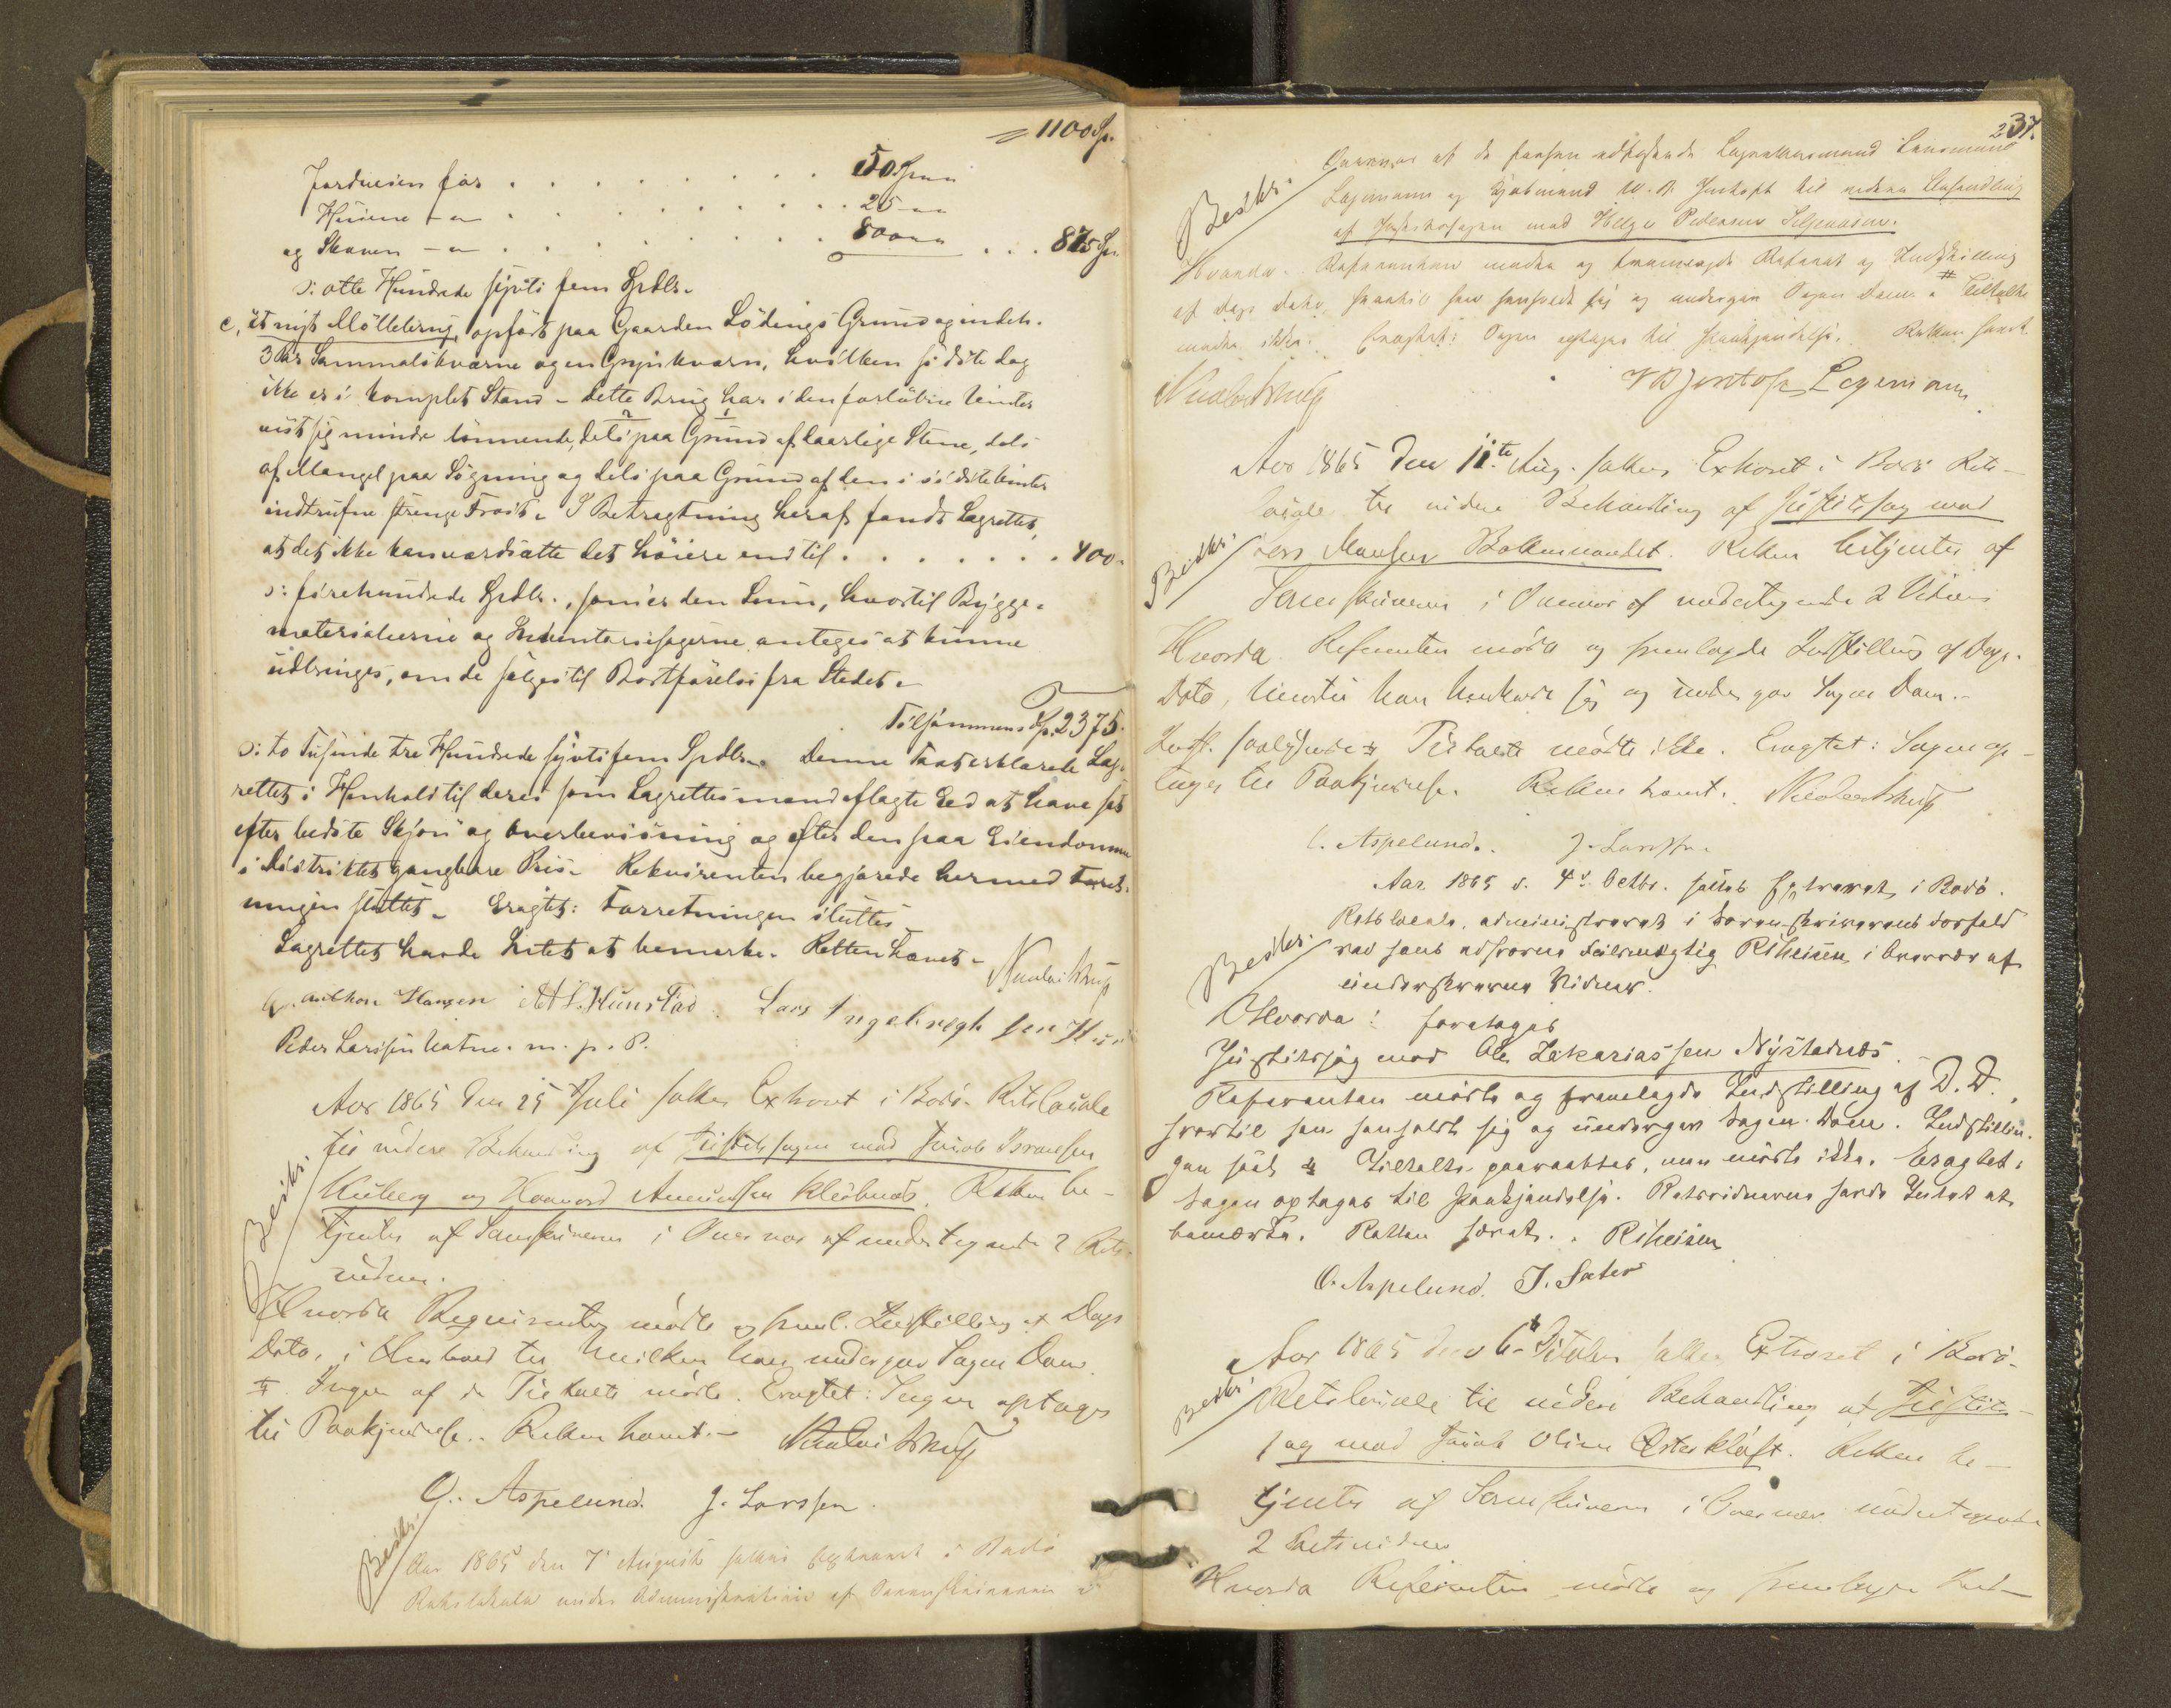 = 1100 Sp.
Jordveien for . . . . . . . . . 50 Spd
Husene - " . . . . . . . . . 25 - "
og Skoven - " . . . . . . . . . 800 " . . . 875 Sp.
ɔ: otte Hundrede sytti fem Spdlr.
c, et nyt Möllebrug, opfört paa Gaarden Lödings Grund og indeh.
3 Par Sammalskværne og en Grynkværn, hvilken sidste dog
ikke er i komplet Stand - dette Brug har i den forløbne Vinter
vist sig mindre lønnende, dels paa Grund af daarlige Stene, dels
af Mangel paa Søgning og dels paa Grund af den i sidste Vinter
indtrufne strenge Frost. I Betragtning heraf fandt Lagrettet,
at det ikke kan værdsætte det høiere end til . . . . . . . 400.
ɔ: firehundrede Spdlr., som er den Sum, hvortil Bygge-
materialierne og Inventariesagerne antages at kunne
udbringes, om de sælges til Bortførelse fra Stedet.
Tilsammens Sp. 2375.
ɔ: to Tusinde tre Hundrede sytti fem Spdlr. Denne Taxt erklærede Lag-
rettet i Henhold til deres som Lagrettesmænd aflagte Eed at have sat
efter bedste Skjøn og Overbeviisning og efter den paa Eiendomme
i Distriktet gangbare Priis. Rekvirenten begjærede hermed Forret-
ningen sluttet. Eragtet: Forretningen sluttes
Lagrettet havde Intet at bemærke. Retten hævet.
Anthon Hansen A. L. Kunstad. Lars Ingebregtsen
Peder Larssen Vatne. m. p. P.
Aar 1865 den 25 Juli sattes Extraret i Bodø Retslocale
til videre Behandling af Justitssagen mod Jacob
og Amundsen. Retten be-
tjentes af Sorenskriveren i Overvær af undertegnede 2 Rets-
vidner.
Beskr.
Hvorda Reqvirenten mødte og freml. Indstilling af Dags
Dato, i Henhold til hvilken han undergav Sagen Dom
Ingen af de Tiltalte mødte. Eragtet: Sagen optages
til Paakjendelse. Retten hævet.
O. Aspelund. J. Larssen.
Beskr.
Aar 1865 den 7de August sattes Extraret i Bodø
Retslokale under Administration af Sorenskriveren
237.
Overvær af de faste edfæstede Lagrettesmænd Lensmand
Lagemann og Kjøbmand W. B. Jentoft til videre Behandling
af Justitssagen mod Helge Pedersen
Beskr.
Hvorda Referenten mødte og fremlagde Referat og Indstilling
af Dags Dato, hvortil han henholdt sig og undergav Sagen Dom. # Tiltalte
mødte ikke. Eragtet: Sagen optages til Paakjendelse. Retten hævet.
W B Jentoft Lagemann
Aar 1865 den 11te Aug. sattes Extraret i Bodø Rets-
locale til videre Behandling af Justitssag mod
Beskr.
Hansen. Retten betjentes af
Sorenskriveren i Overvær af undertegnede 2 Vidner
Hvorda Referenten mødte og fremlagde Indstilling af Dags
Dato, hvortil han henholdt sig og undergav Sagen Dom.
Tiltalte mødte ikke. Eragtet: Sagen op-
tages til Paakjendelse. Retten hævet.
O. Aspelund. J. Larssen
Aar 1865 d. 4de Octbr. sattes Extraret i Bodø
Retslocale, administreret i Sorenskriverens Forfald
ved hans edsvorne Fuldmægtig Riheisen i Overvær af
underskrevne Vidner.
Beskr.
Hvorda: foretages
Justitssag mod Ole Zakariassen Nystadnæs.
Referenten mødte og fremlagde Indstilling af D. D.,
hvortil han henholdt sig og undergav Sagen Dom. Indstillin-
gen saal. Tiltalte paaraabtes, men mødte ikke. Eragtet:
Sagen optages til Paakjendelse. Retsvidnerne havde Intet at
bemærke. Retten hævet. Riheisen
O. Aspelund. J. Sæter
Aar 1865 den 6te October sattes Extraret i Bodø
Beskr.
Retslocale til videre Behandling af Justits-
sag mod Jacob Olsen Østerkløft. Retten be-
tjentes af Sorenskriveren i Overvær undertegnede
2 Retsvidner
Hvorda Referenten mødte og fremlagde Ind-